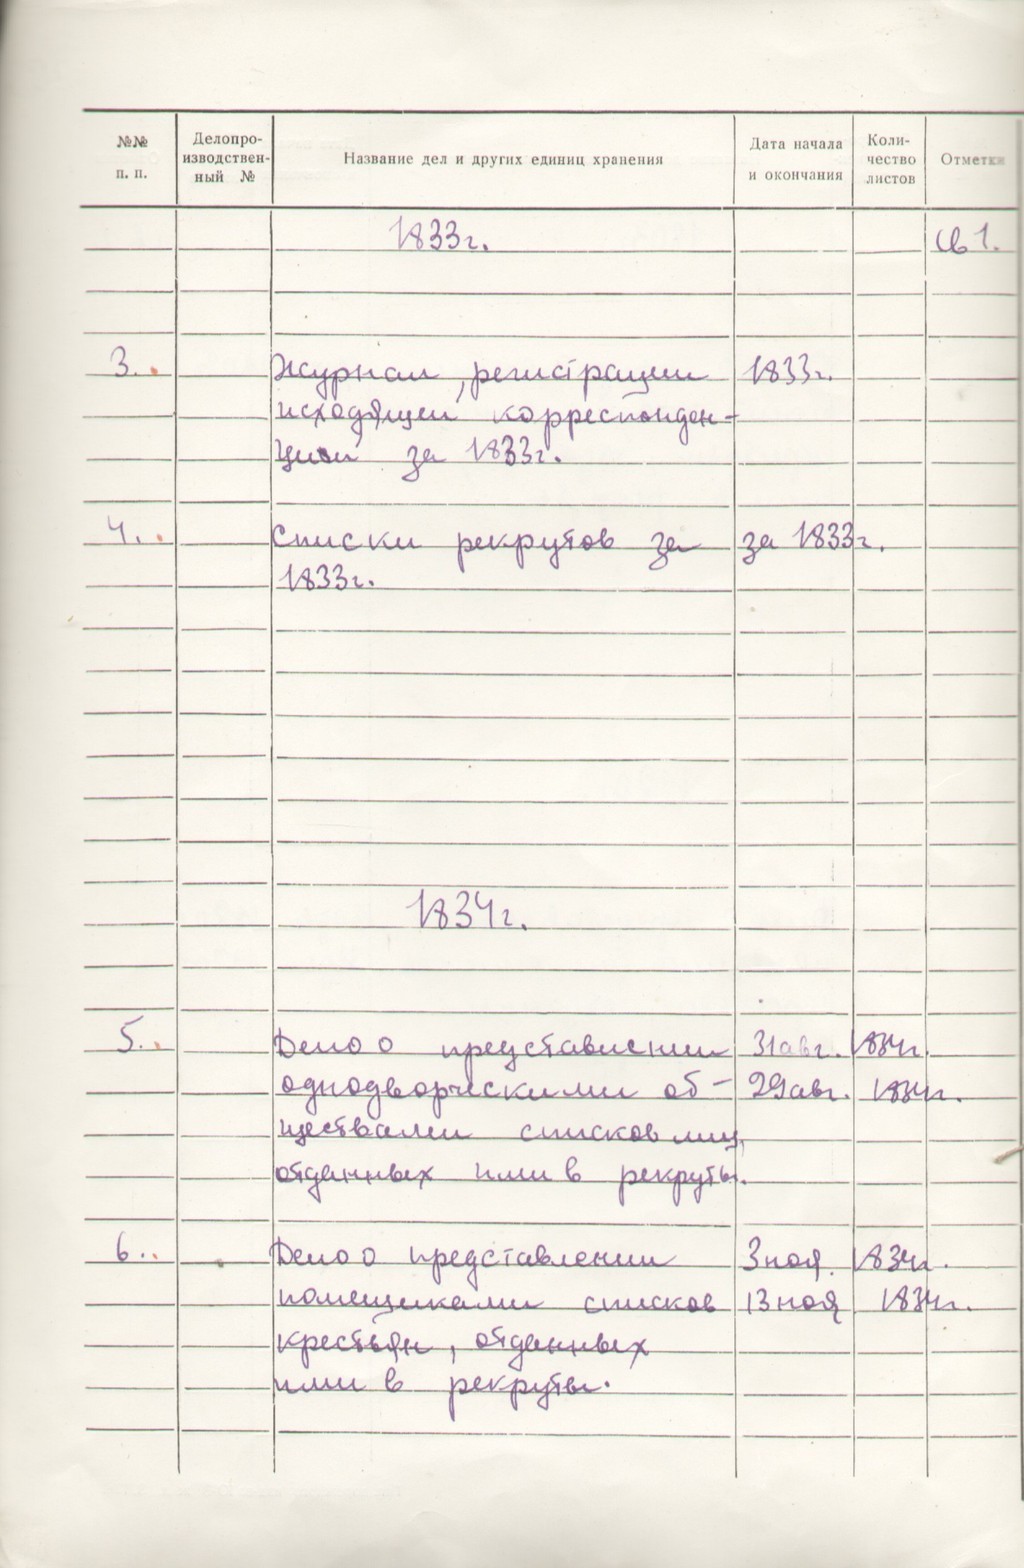 №№ п. п. Делопро-изводствен-ный № Название дел и других единиц хранения Дата начала и окончания Коли-чество листов Отметки
1833г. св 1.
3. Журнал, регистрации 1833г.
исходящей корреспонден-
ции за 1833г.
4. Списки рекрутов за за 1833г.
1833г.
1834г.
5. Дело о представлении 31авг. 1834г.
однодворческими об- 29авг. 1834г.
ществами списков лиц,
отданных ими в рекруты.
6. Дело о представлении 3ноя. 1834г.
помещиками списков 13ноя 1834г.
крестьян, отданных
ими в рекруты.